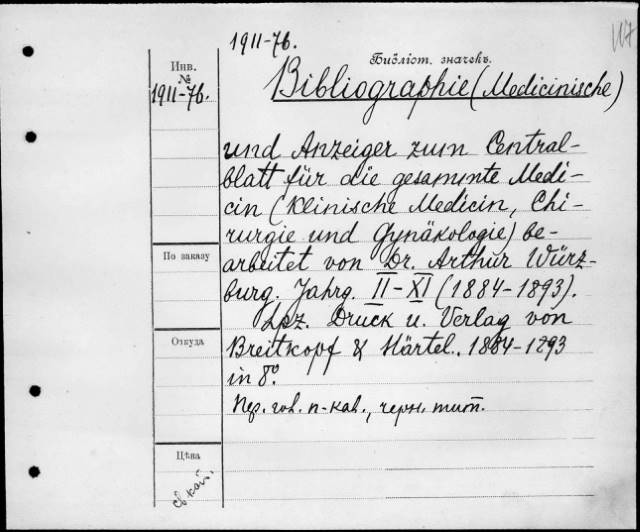 1911-76.
Библіот. значекъ.
Инв.
№
1911-76.
Bibliographie (Medicinische)
und Anzeiger zum Central-
blatt für die gesammte Medi-
cin (Klinische Medicin, Chi-
rurgie und Gynäkologie) be-
arbeitet von Dr. Arthur Würz-
burg. Jahrg. II-XI (1884-1893).
Lpz. Druck u. Verlag von
Breitkopf & Härtel. 1884-1893
in 8°.
По заказу
Откуда
Цѣна